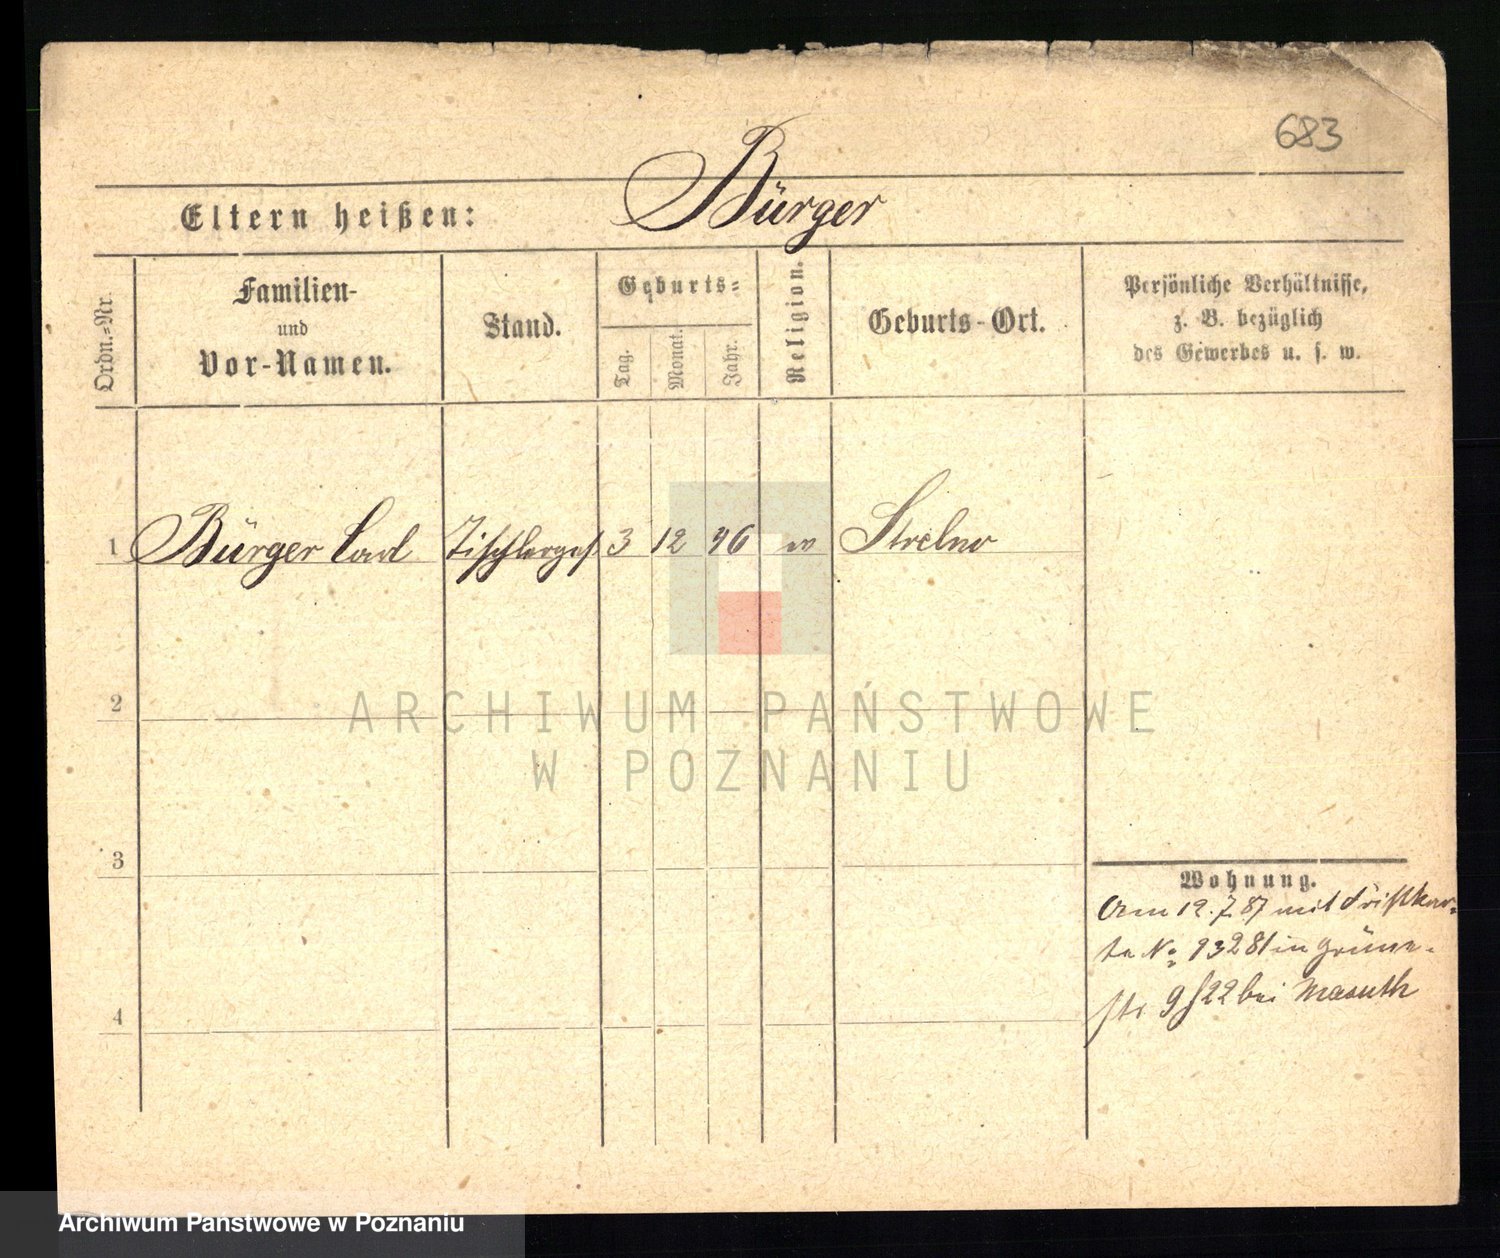 683
Bürger
Eltern heißen:
Ordn.-Nr.
Familien-
und
Vor-Namen.
Stand.
Geburts-
Tag.
Monat.
Jahr.
Religion.
Geburts-Ort.
Persönliche Verhältnisse,
z. B. bezüglich
des Gewerbes u. s. w.
1 Bürger Carl Tischlerges. 3 12 46 ev Strelno
2
3
4
Wohnung.
Am 12.7.87 mit Fristkar-
te No 13281 in Grüne-
str 9 f 22 bei
ARCHIWUM PAŃSTWOWE
W POZNANIU
Archiwum Państwowe w Poznaniu